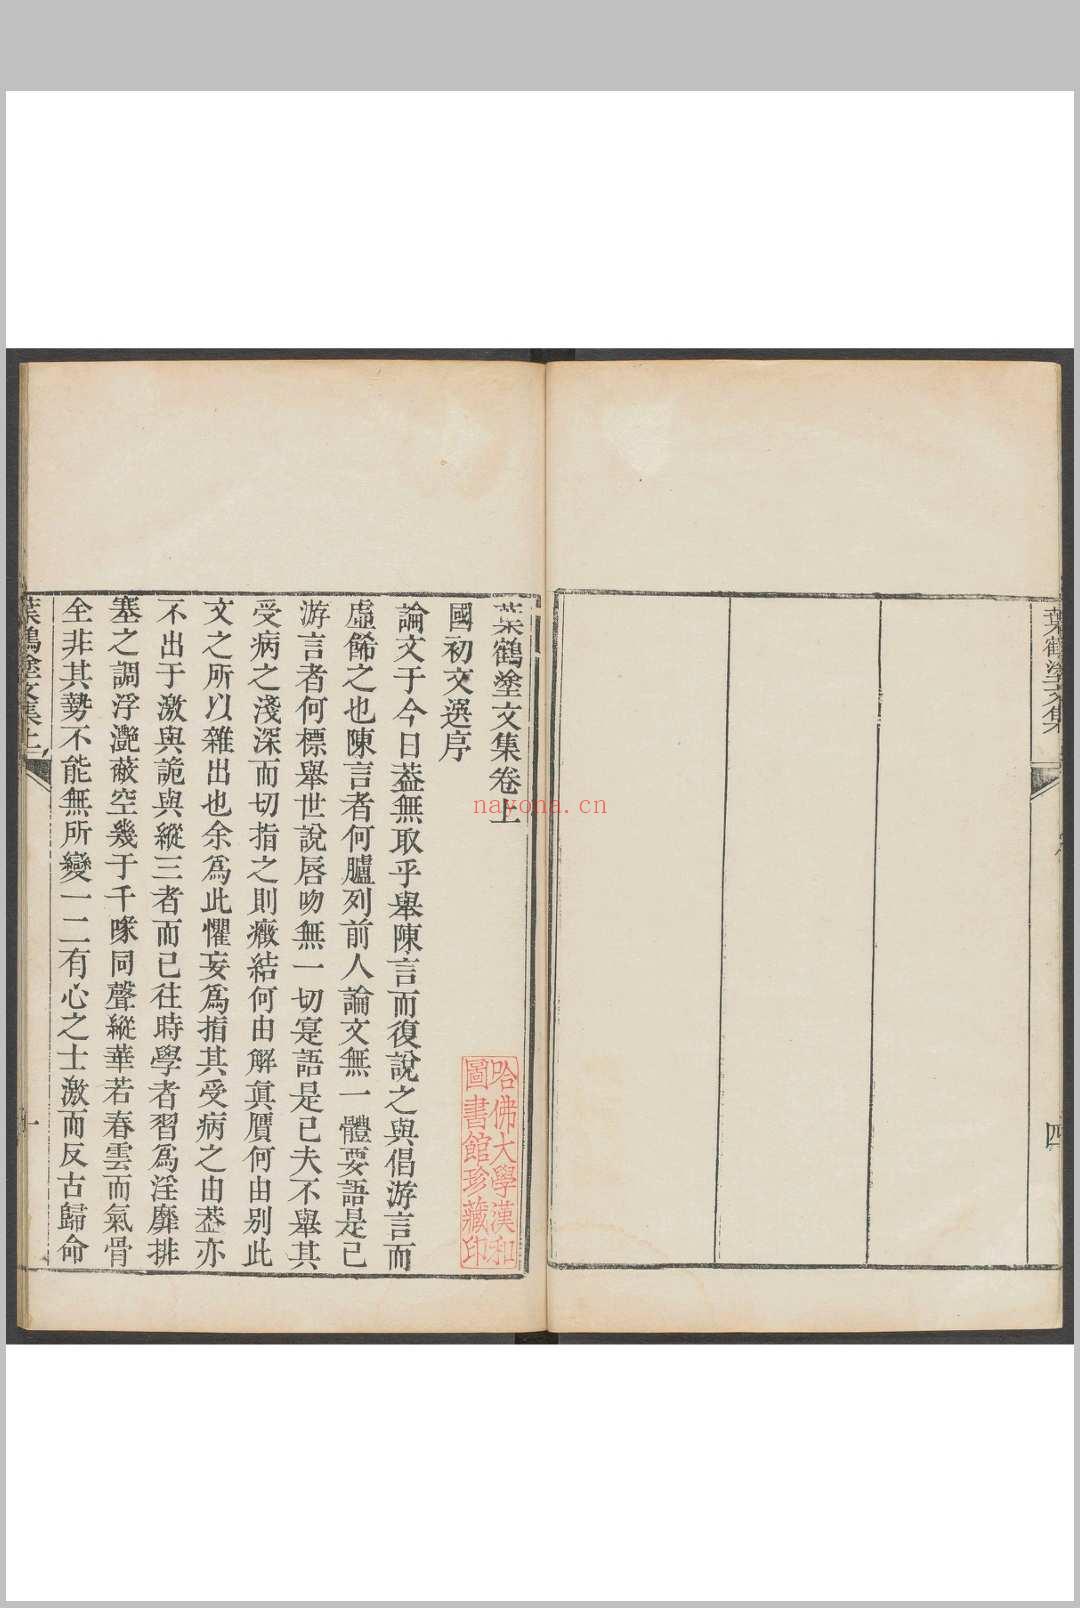 葉鶴塗文集
四
葉鶴塗文集卷上
國初文選序
論文于今日葢無取乎舉陳言而復說之與倡游言而
虛餙之也陳言者何臚列前人論文無一體要語是已
游言者何標舉世說唇吻無一切寔語是已夫不舉其
受病之淺深而切指之則癥結何由解眞贋何由別此
文之所以雜出也余爲此懼妄爲指其受病之由葢亦
不出于激與詭與縱三者而已往時學者習爲淫靡排
塞之調浮灔蔽空幾于千喙同聲縱華若春雲而氣骨
全非其勢不能無所變一二有心之士激而反古歸命
葉鶴塗文集上
一
哈佛大學漢和
圖書館珍藏印
nayona.cn